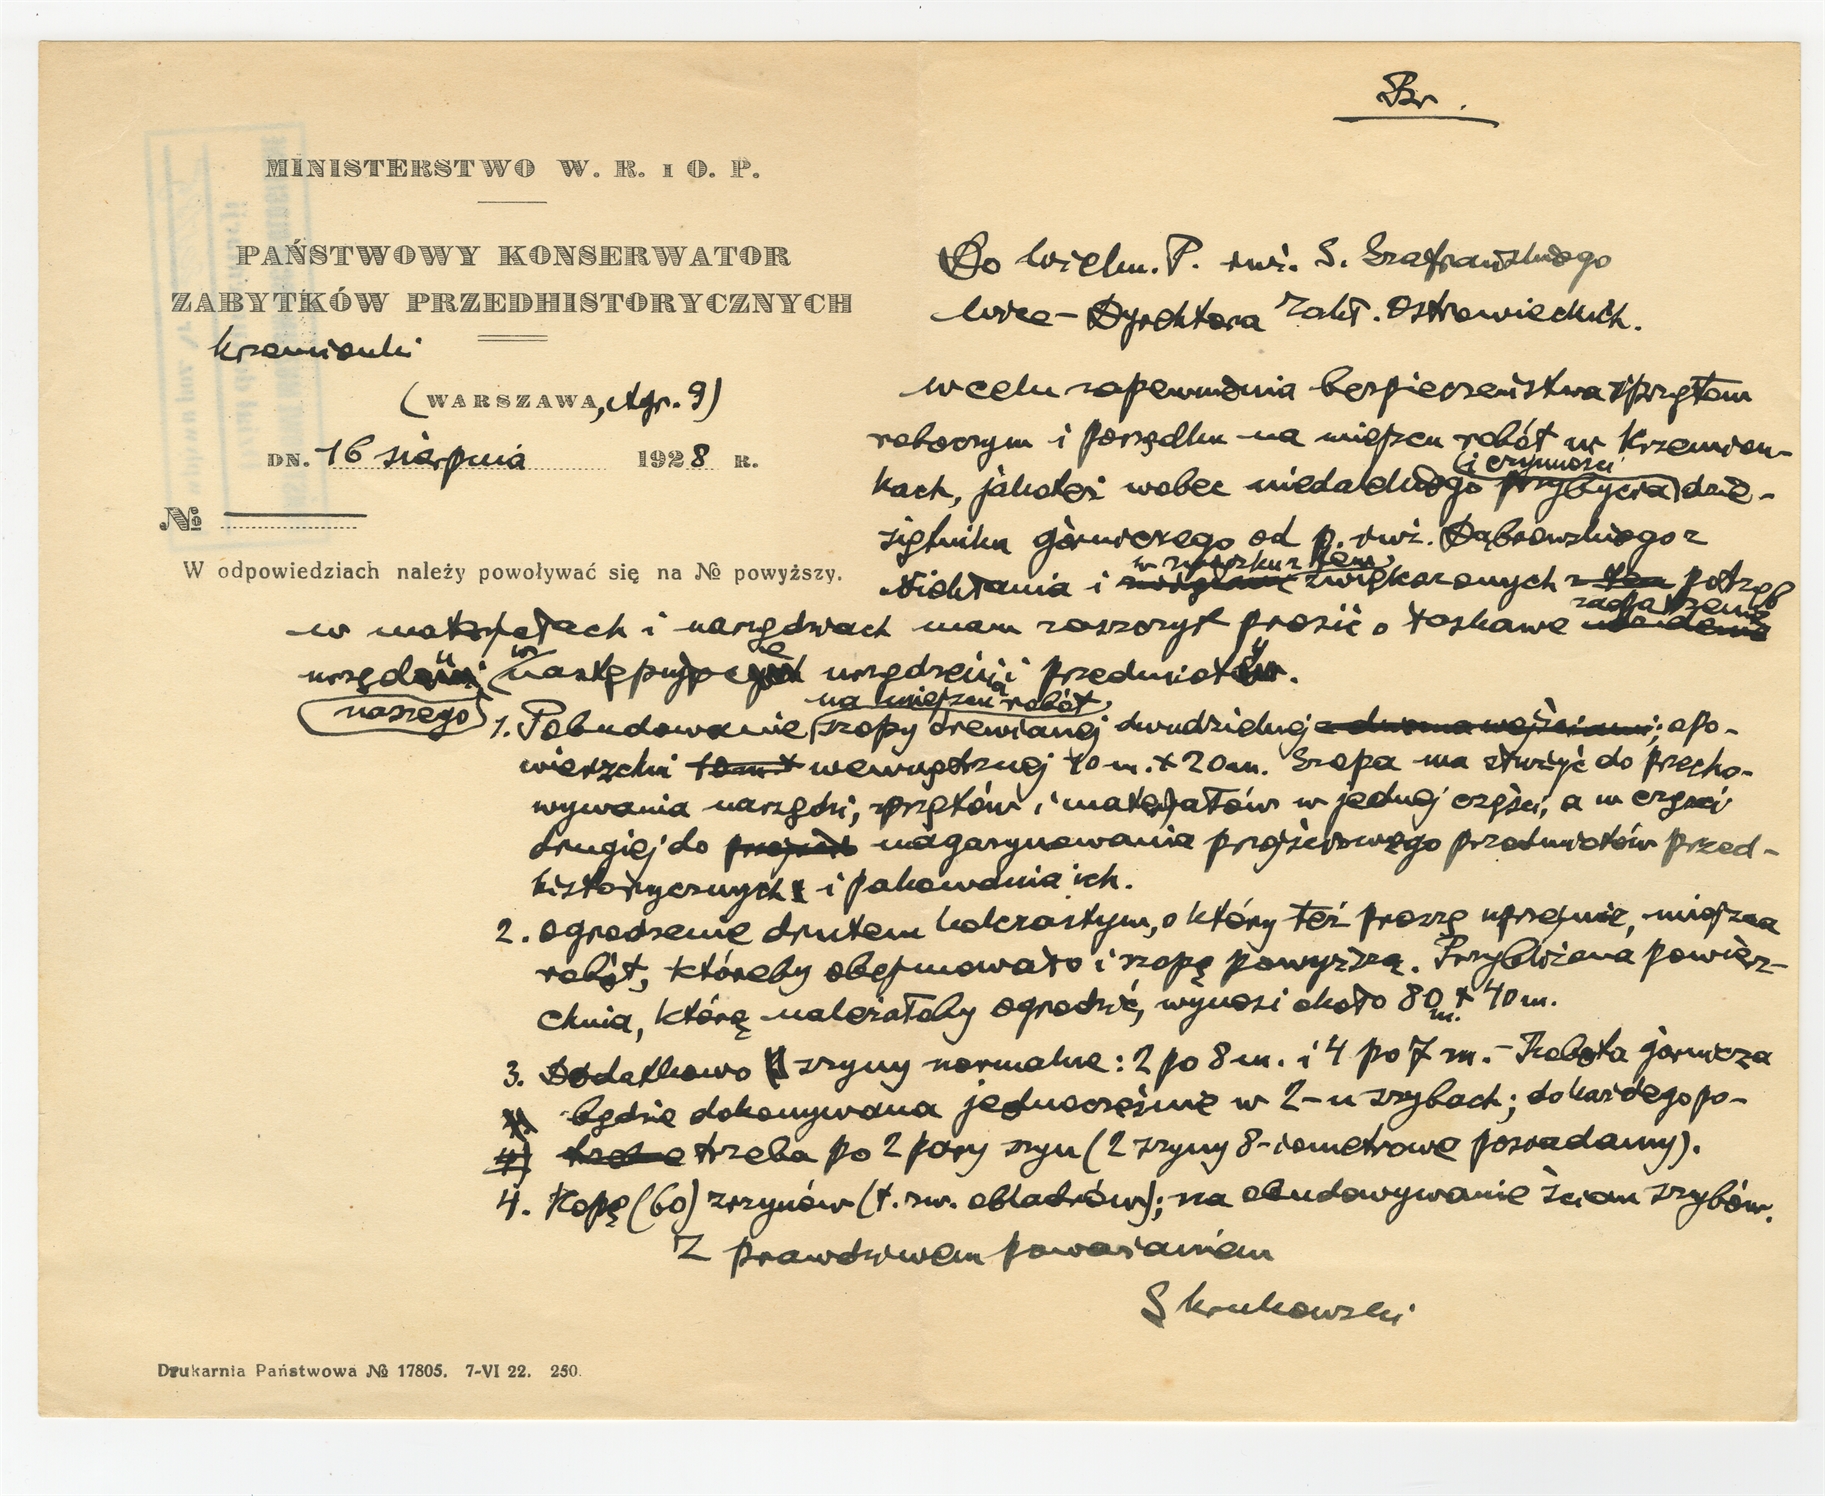 Br.
MINISTERSTWO W. R. i O. P.
PAŃSTWOWY KONSERWATOR
ZABYTKÓW PRZEDHISTORYCZNYCH
Krzemionki
(WARSZAWA, Agr. 9)
DN. 16 sierpnia 1928 R.
№
W odpowiedziach należy powoływać się na № powyższy.
Do Wielm. P. inż. S. Szafrańskiego
Wice-Dyrektora Zakł. Ostrowieckich.
W celu zapewnienia bezpieczeństwa sprzętom
roboczym i porządku na miejscu robót w Krzemion-
(i czynności
kach, jakoteż wobec niedalekiego przybycia) dzie-
siętnika górniczego od p. inż. Dąbrowskiego z
w związku z tem
Niekłania i zwiększonych potrzeb
w materjałach i narzędziach mam zaszczyt prosić o łaskawe
zaopatrzenie
naszego
w następujące urządzenia i przedmioty.
na miejscu robót
1. Pobudowanie szopy drewnianej dwudzielnej; o po-
wierzchni wewnętrznej 10 m. x 20 m. Szopa ma służyć do przecho-
wywania narzędzi, sprzętów i materjałów w jednej części, a w części
drugiej do magazynowania przejściowego przedmiotów przed-
historycznych i pakowania ich.
2. Ogrodzenie drutem kolczastym, o który też proszę uprzejmie, miejsca
robót, któreby obejmowało i szopę powyższą. Przybliżona powierz-
chnia, którą należałoby ogrodzić, wynosi około 80 m. x 40 m.
3. Dodatkowo szyny normalne: 2 po 8 m. i 4 po 7 m. – Robota górnicza
będzie dokonywana jednocześnie w 2-u szybach; do każdego po-
trzeba po 2 pary szyn (2 szyny 8-iometrowe posiadamy).
4. Kopę (60) zrzynów (t. zw. obladrów); na obudowywanie ścian szybów.
Z prawdziwem poważaniem
S Krukowski
Drukarnia Państwowa № 17805. 7-VI 22. 250.